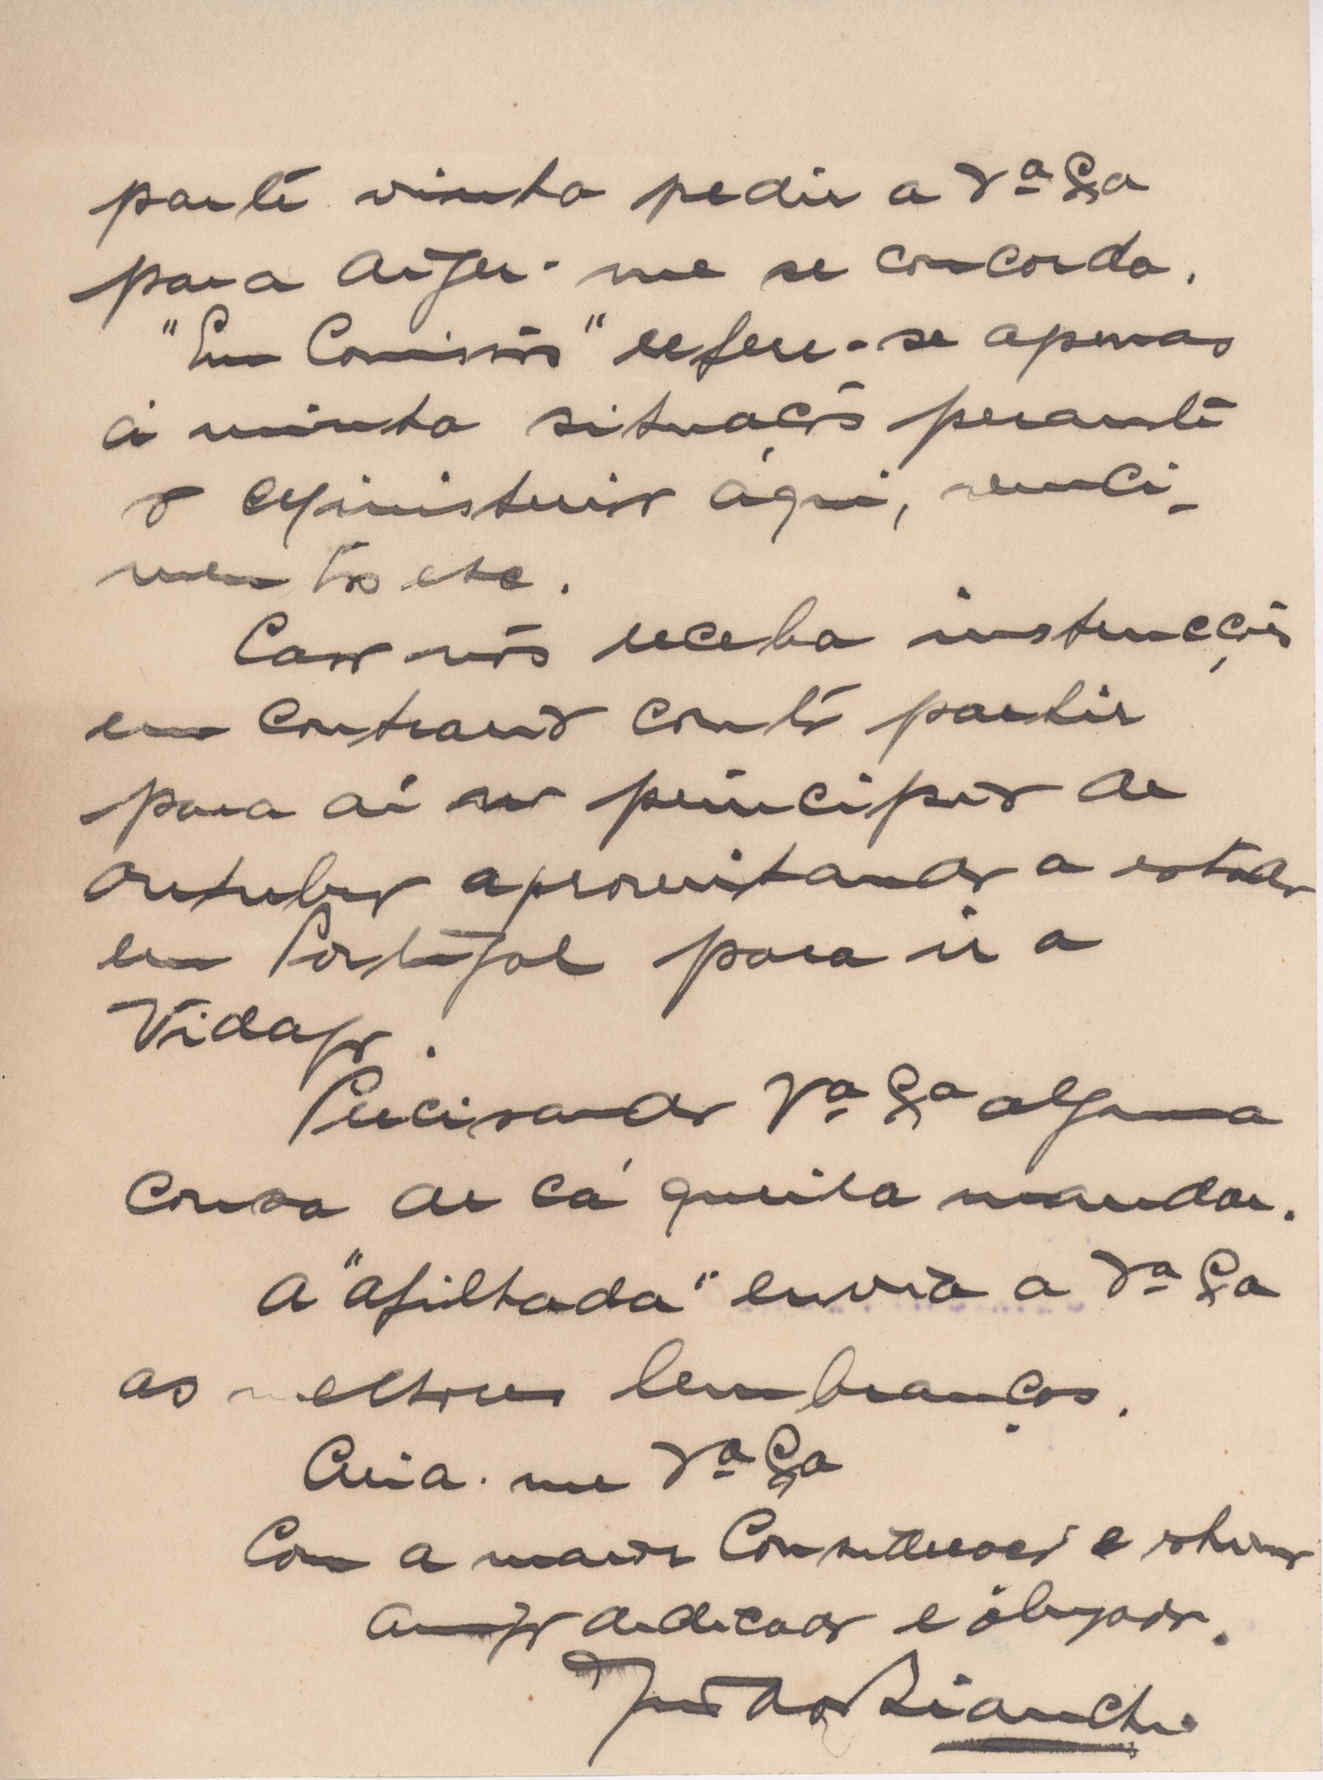 parte vinha pedir a Vª Exª
para dizer-me se concorda.
"Em Comissão" refere-se apenas
á minha situação perante
o Ministerio aqui, venci-
mentos etc.
Caso não receba instrucções
em contrario conto partir
para aí no principio de
Outubro aproveitando a estada
em Portugal para ir a
Vidago.
Precisando Vª Exª alguma
cousa de cá queira mandar.
A "afilhada" envia a Vª Exª
as melhores lembranças.
Creia-me Vª Exª
Com a maior Consideração e estima
amigo dedicado e obrigado.
Bianchi